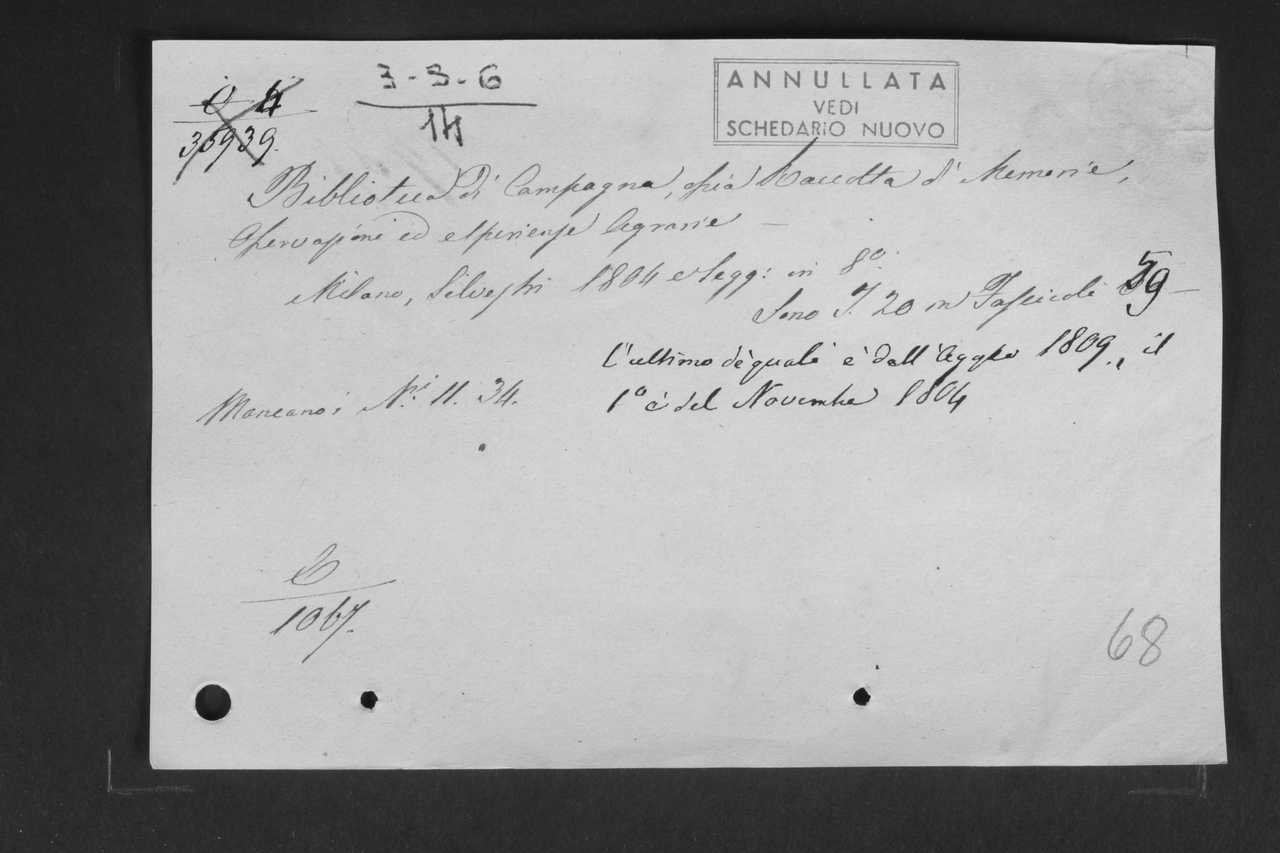 35939.
3-3-6
14
ANNULLATA
VEDI
SCHEDARIO NUOVO
Biblioteca di Campagna, ossia Raccolta d' Memorie,
Osservazioni ed esperienze Agrarie —
Milano, Silvestri 1804 e segg: in 8°.
Sono T. 20 in Fascicoli 59 —
L'ultimo de' quali è dell'Agosto 1809., il
1° è del Novembre 1804
Mancano i N.i 11. 34.
1067.
68